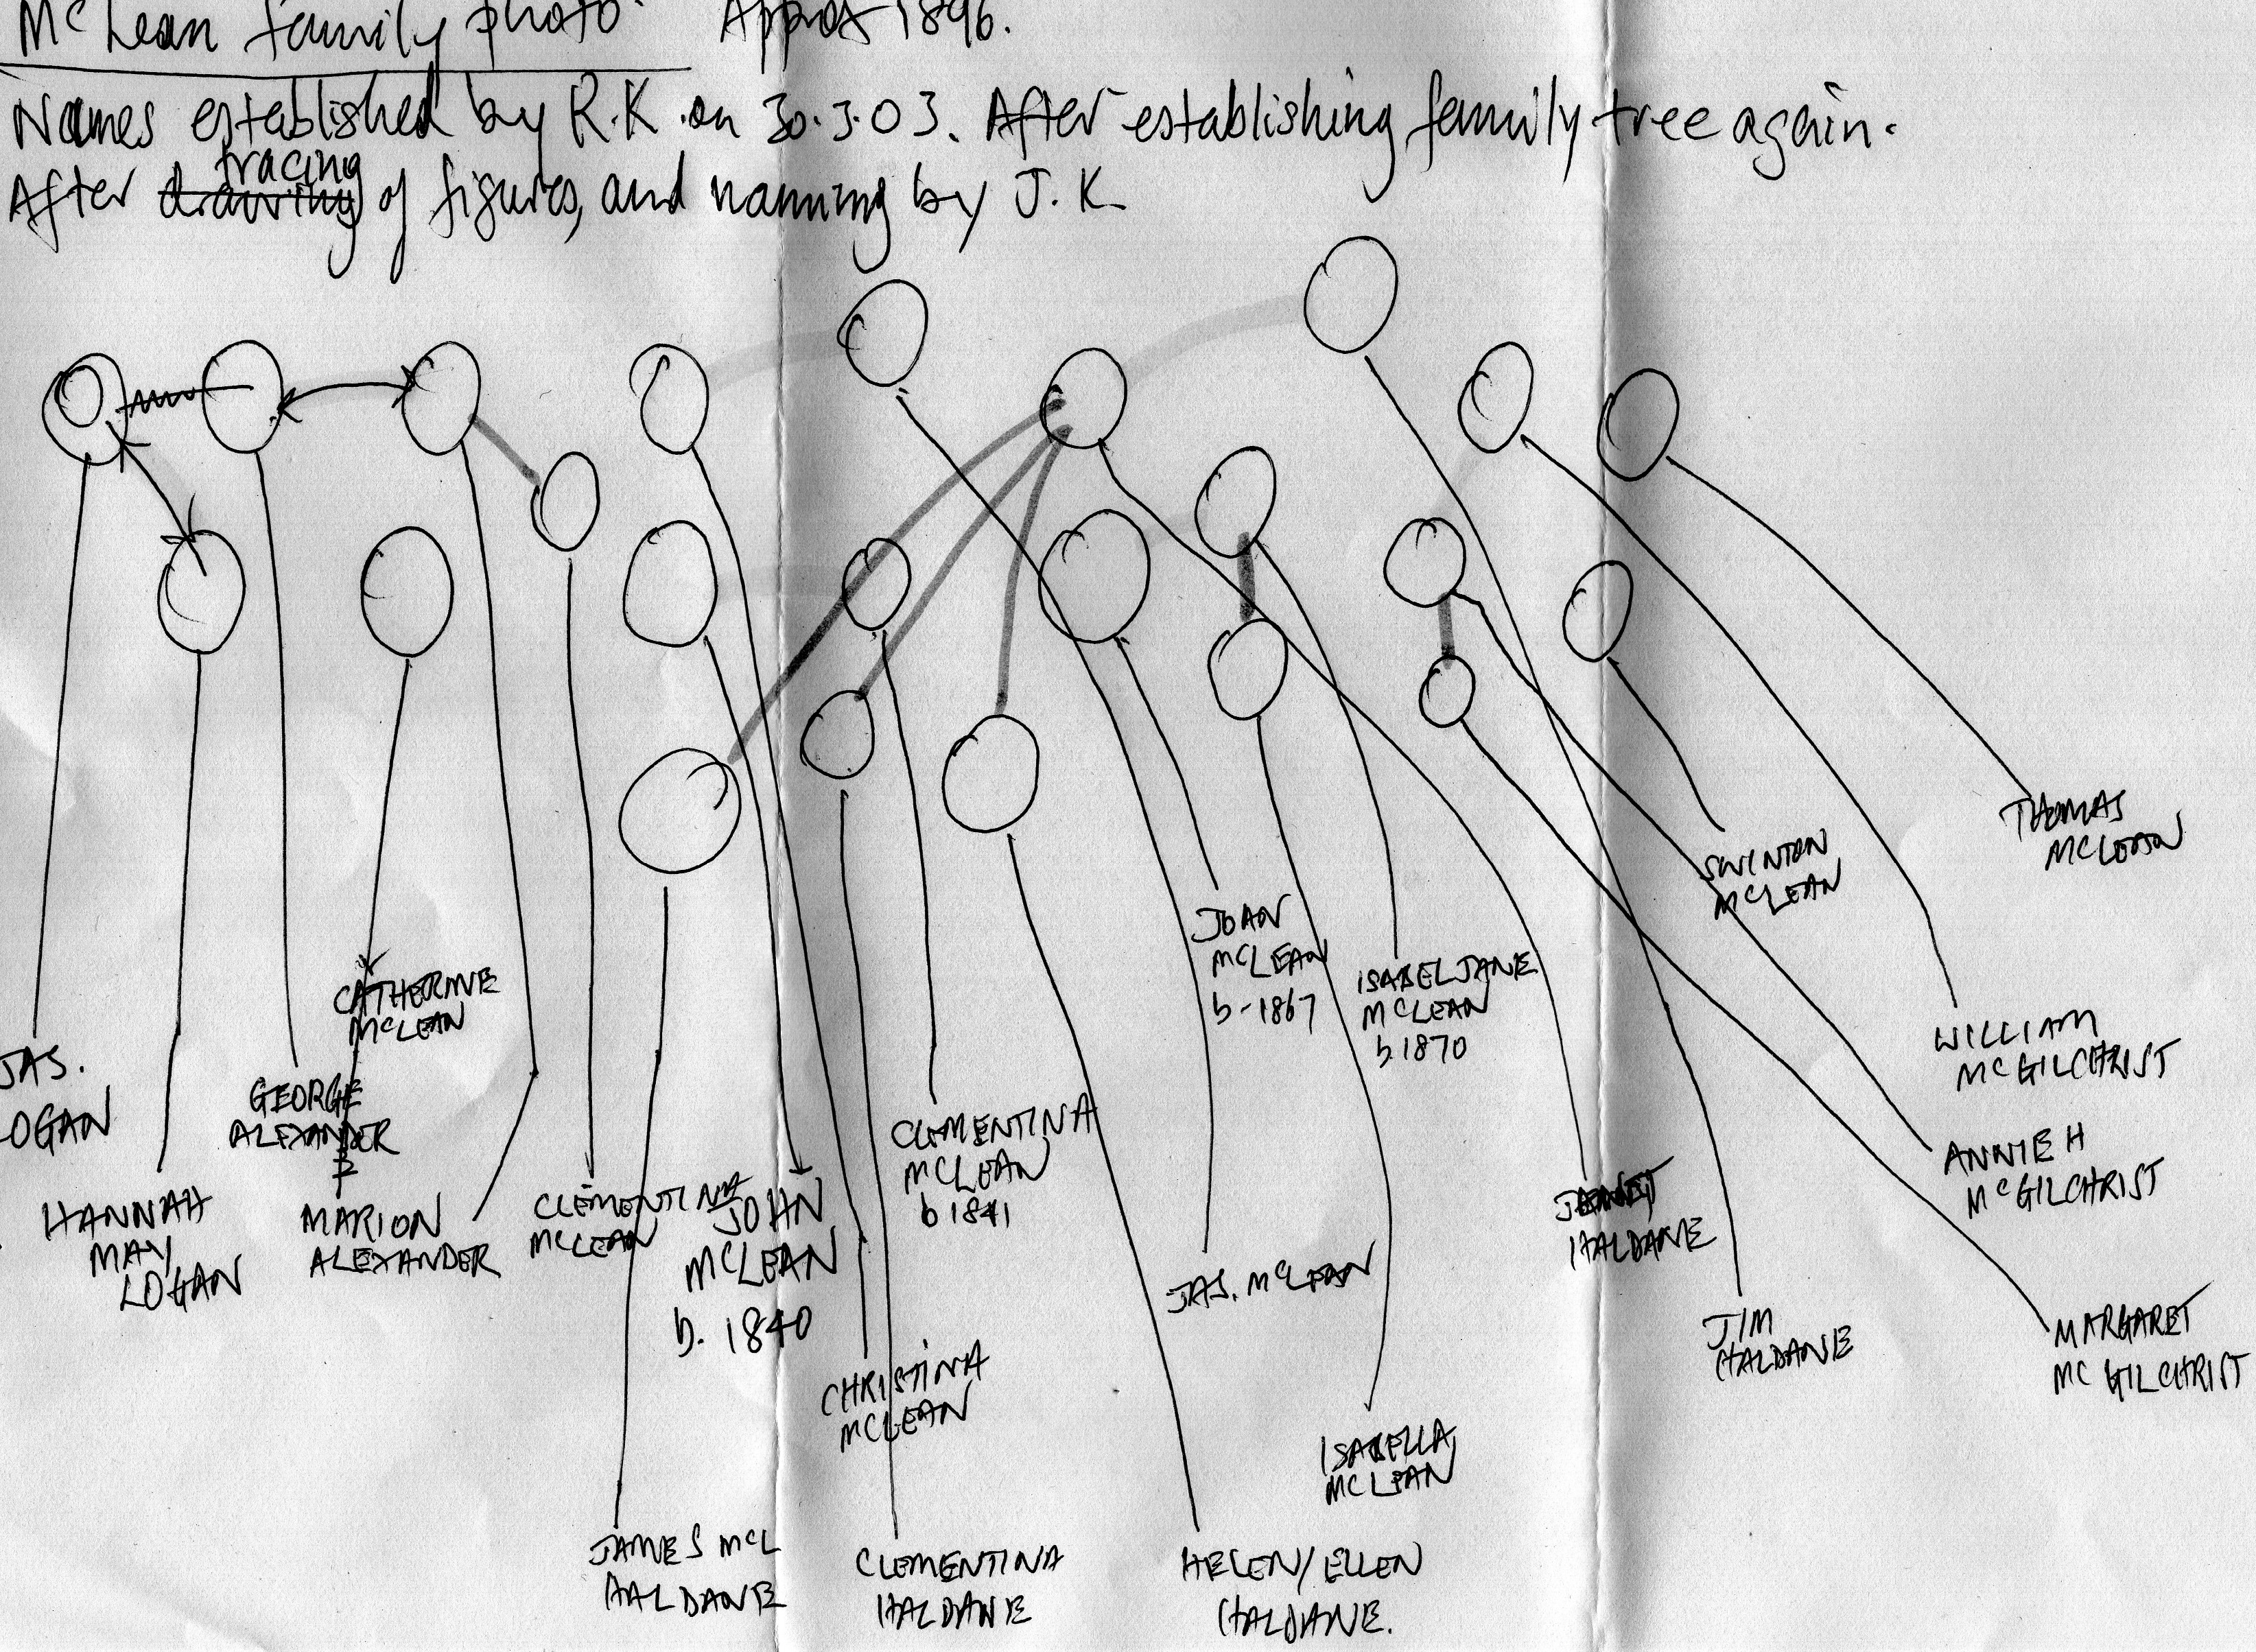 McLean family photo. Approx 1896.
Names established by R.K. on 30.3.03. After establishing family tree again.
tracing
After drawing of figures, and naming by J.K.
THOMAS
MCLEAN
SWINTON
MCLEAN
JOAN
MCLEAN
b-1867
ISABEL JANE
MCLEAN
b.1870
CATHERINE
MCLEAN
WILLIAM
MCGILCHRIST
JAS.
OGAN
GEORGE
ALEXANDER
?
CLEMENTINA
MCLEAN
b 1841
ANNIE H
MCGILCHRIST
HANNAH
MAY
LOGAN
MARION
ALEXANDER
CLEMENTINA
MCLEAN
JOHN
MCLEAN
b. 1840
HALDANE
JAS. MCLEAN
JIM
HALDANE
MARGARET
MC GILCHRIST
CHRISTINA
MCLEAN
ISABELLA
MCLEAN
JAMES MCL
HALDANE
CLEMENTINA
HALDANE
HELEN/ELLEN
HALDANE.